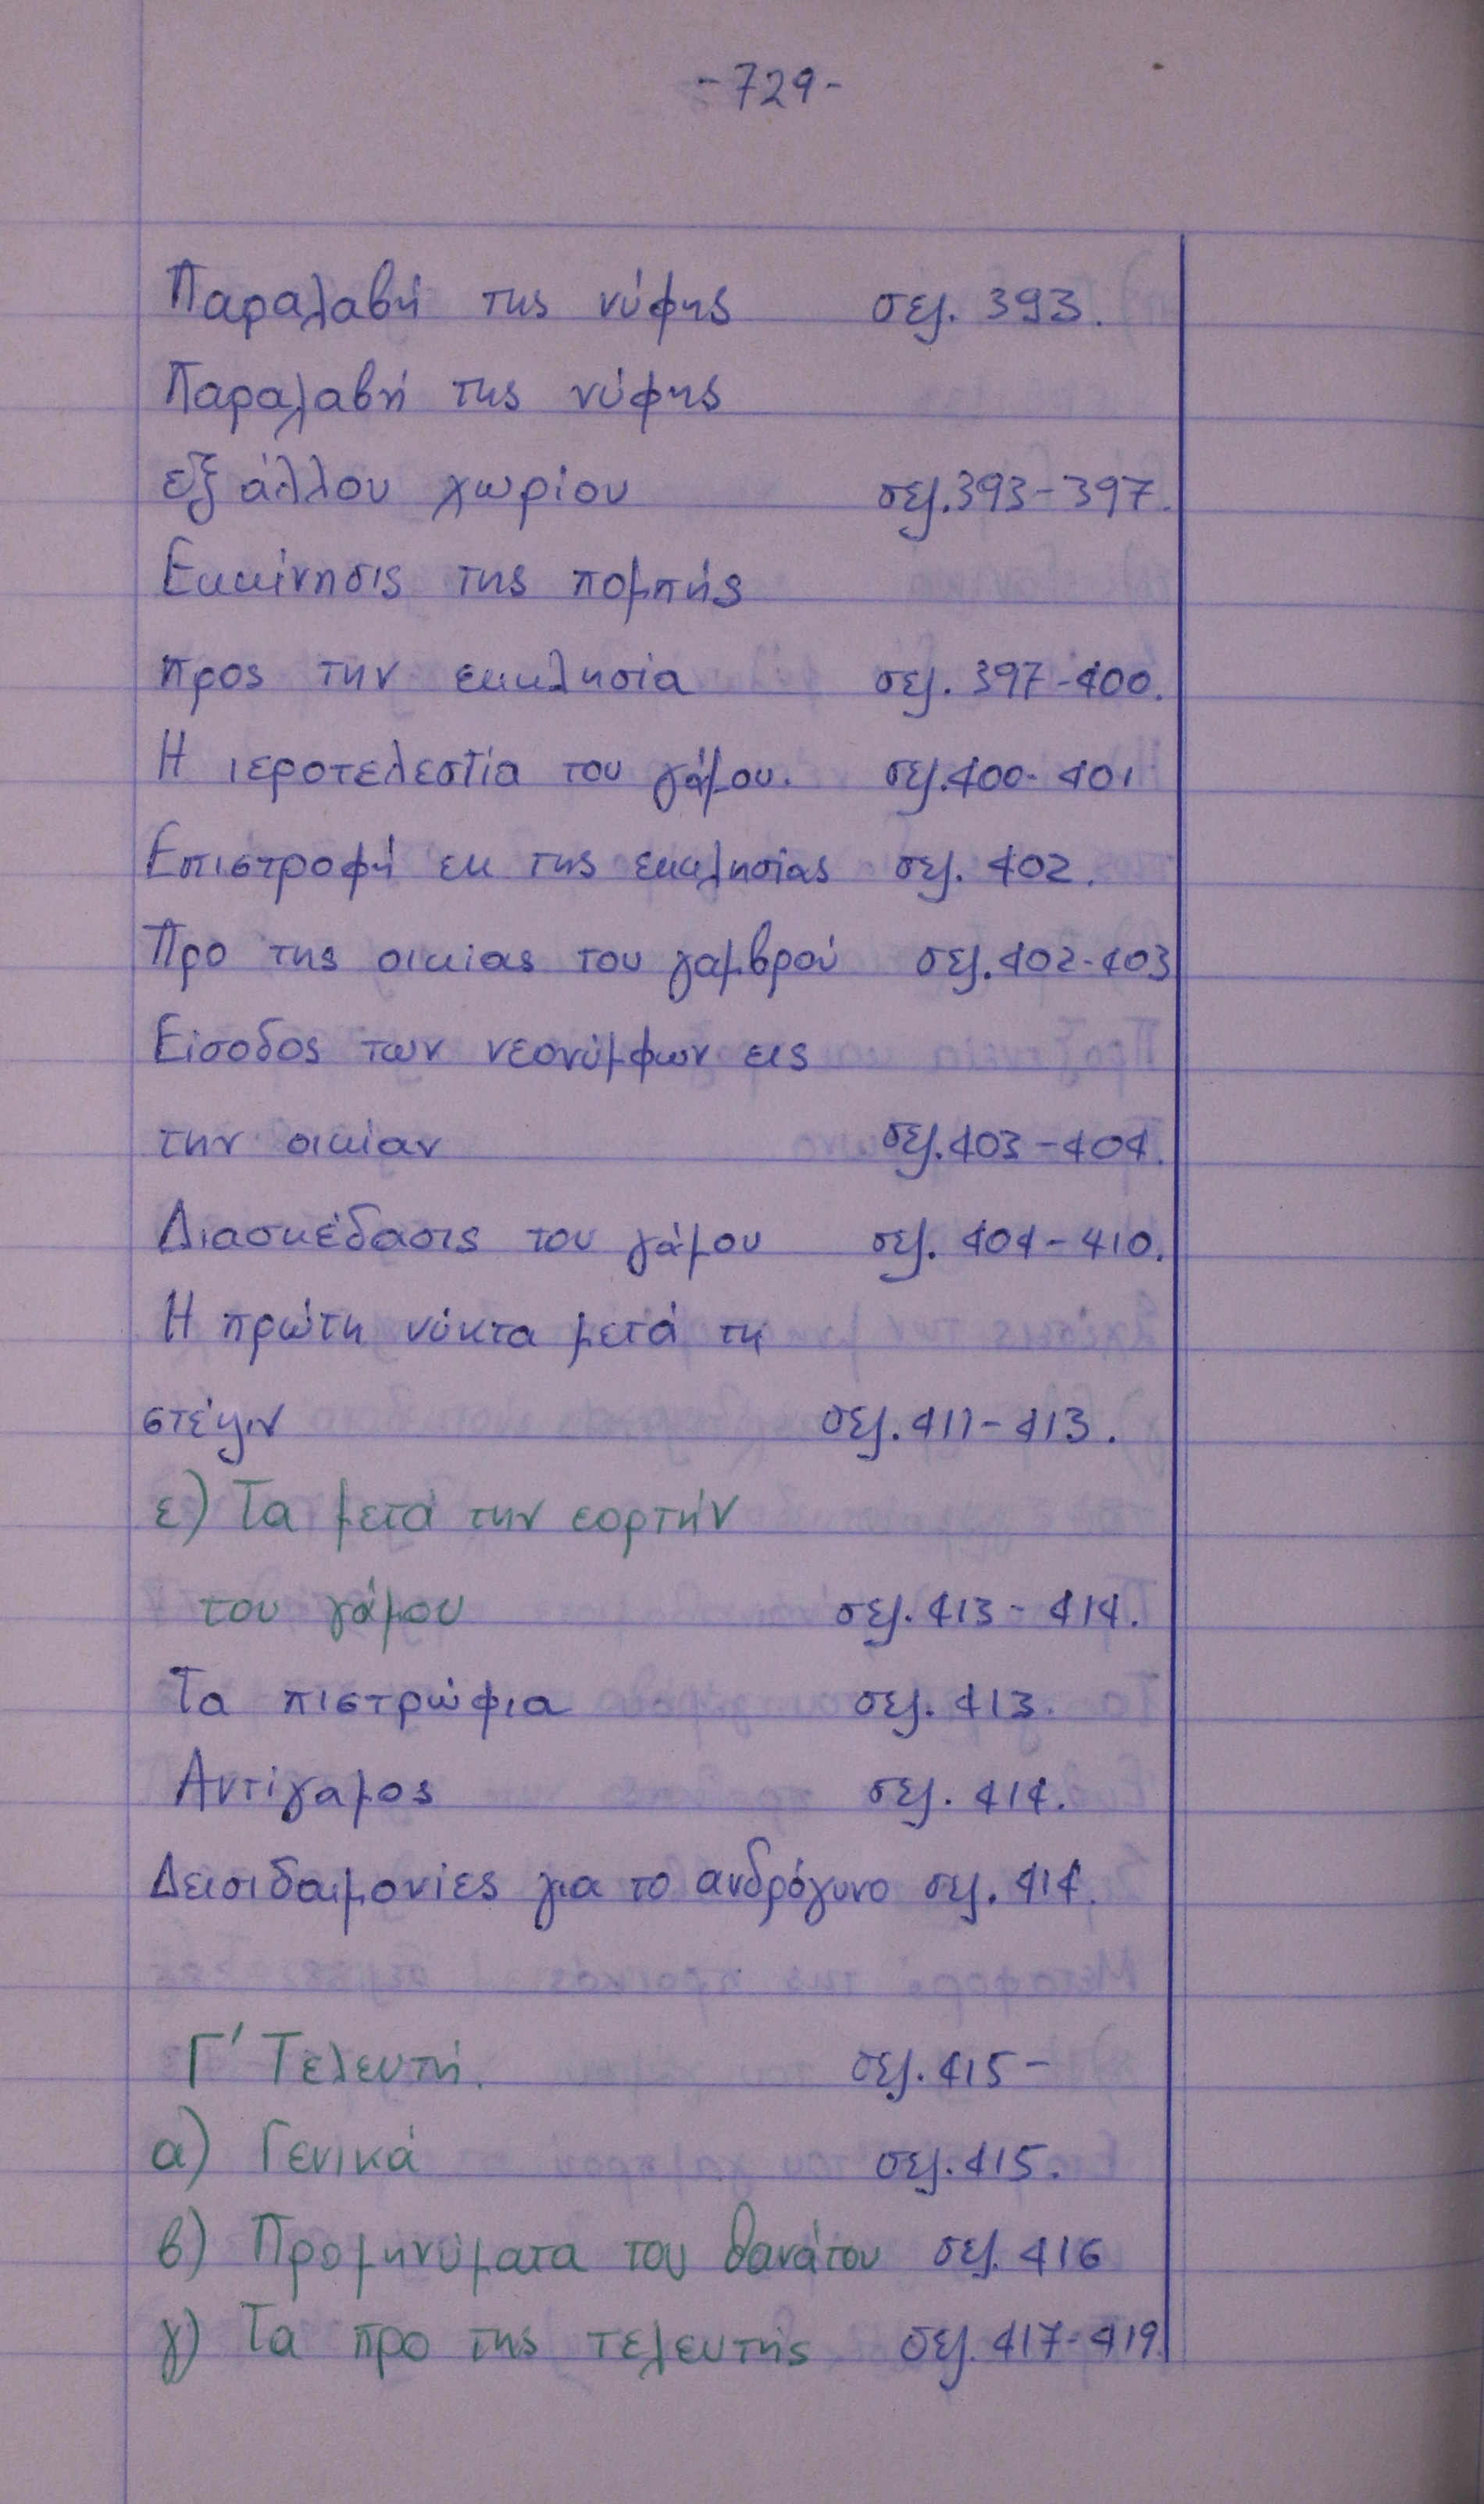 -729-
Παραλαβή της νύφης σελ. 393.
Παραλαβή της νύφης
εξ άλλου χωρίου σελ. 393-397.
Εκκίνησις της πομπής
προς την εκκλησία σελ. 397-400.
Η ιεροτελεστία του γάμου. σελ. 400-401
Επιστροφή εκ της εκκλησίας σελ. 402.
Προ της οικίας του γαμβρού σελ. 402-403
Είσοδος των νεονύμφων εις
την οικίαν σελ. 403-404.
Διασκέδασις του γάμου σελ. 404-410.
Η πρώτη νύκτα μετά τη
στέψιν σελ. 411-413.
ε) Τα μετά την εορτήν
του γάμου σελ. 413-414.
Τα πιστρώφια σελ. 413.
Αντίγαμος σελ. 414.
Δεισιδαιμονίες για το ανδρόγυνο σελ. 414.
Γ' Τελευτή. σελ. 415-
α) Γενικά σελ. 415.
β) Προμηνύματα του θανάτου σελ. 416
γ) Τα προ της τελευτής σελ. 417-419.